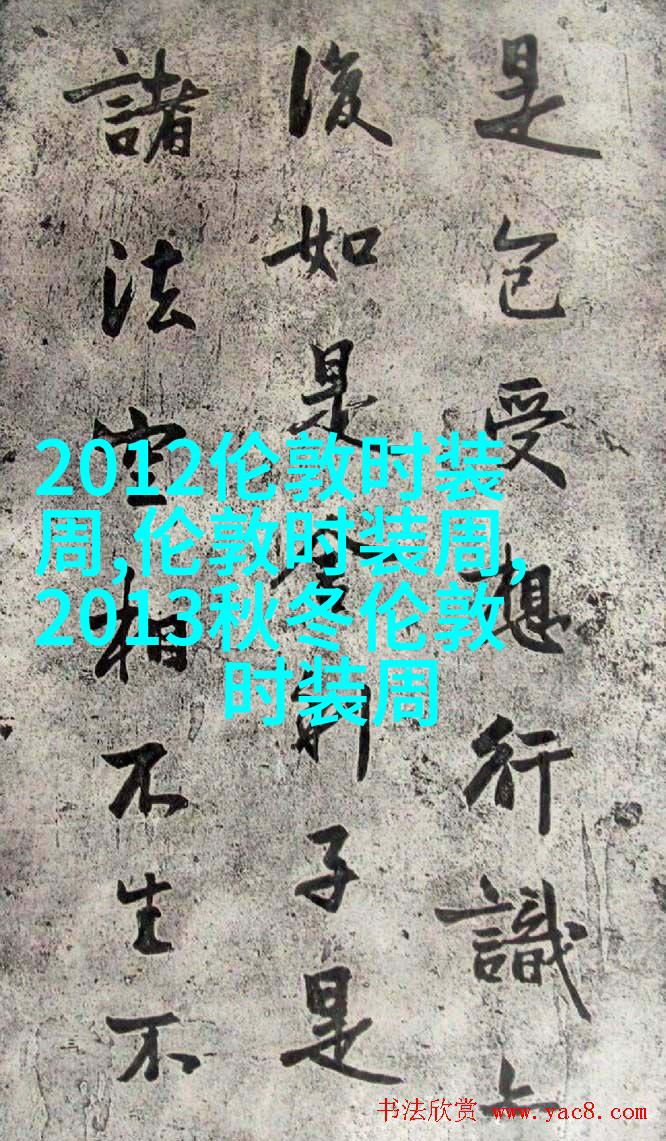 是色受想行識
復如是舍利子是
諸法空相不生不
2012伦敦时装
周,伦敦时装周,
2013秋冬伦敦
时装周
书法欣赏 www.yac8.com